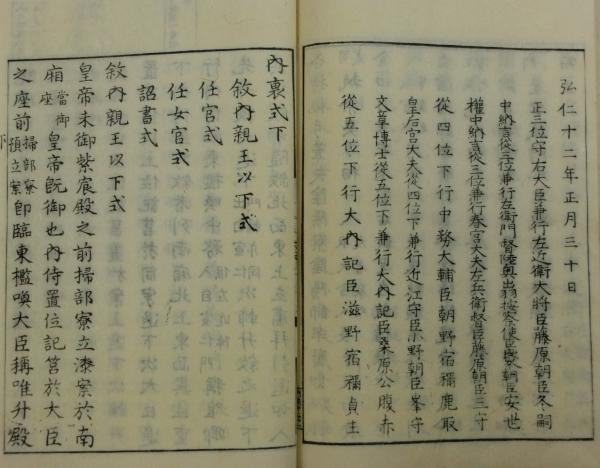 弘仁十二年正月三十日
正三位守右大臣兼行左近衛大將臣藤原朝臣冬嗣
中納言從三位兼行左衛門督陸奧出羽按察使臣良岑朝臣安世
權中納言從三位兼行春宮大夫左兵衛督臣藤原朝臣三守
從四位下行中務大輔臣朝野宿禰鹿取
皇后宮大夫從四位下兼行近江守臣小野朝臣岑守
文章博士從五位下兼行大內記臣桑原公腹赤
從五位下行大內記臣滋野宿禰貞主
內裏式下
敘內親王以下式
任官式
任女官式
詔書式
敘內親王以下式
皇帝未御紫宸殿之前掃部寮立漆案於南
廂當御座皇帝旣御也內侍置位記筥於大臣
之座前掃部寮預立案卽臨東檻喚大臣稱唯升殿